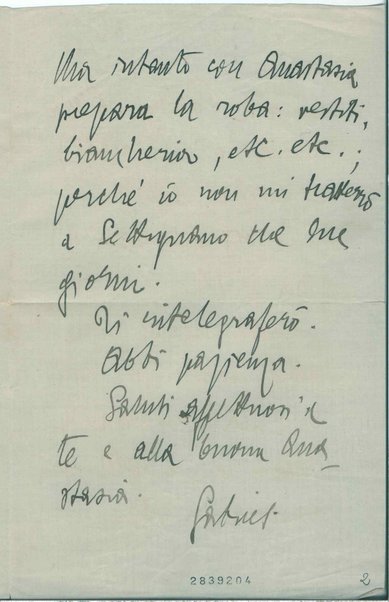 Ma intanto con Anastasia
prepara la roba: vestiti,
biancheria, etc. etc.;
perché io non mi tratterrò
a Settignano che tre
giorni.
Ti intelegraferò.
Abbi pazienza.
Saluti affettuosi a
te e alla buona Ana-
stasia.
Gabriel.
2839204
2